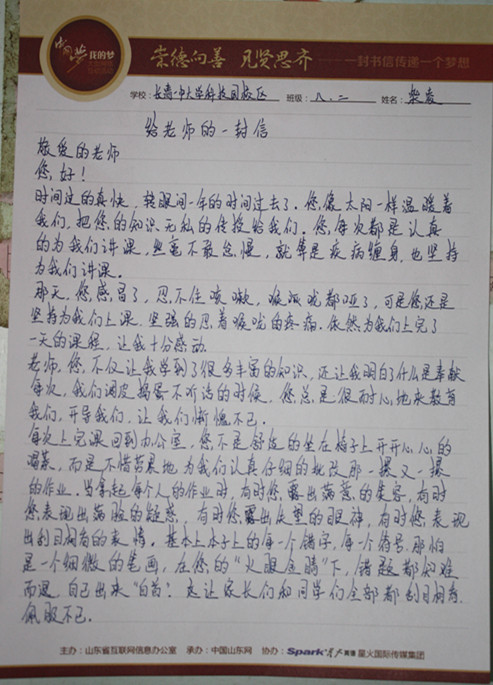 中国梦
我的梦
崇德向善 见贤思齐——一封书信传递一个梦想
学校：长清一中大学科技园校区 班级：八.二 姓名：柴爱
给老师的一封信
敬爱的老师
您，好！
时间过的真快，转眼间一年的时间过去了。您像太阳一样温暖着
我们，把您的知识无私的传授给我们。您，每次都是认真
的为我们讲课，丝毫不敢怠慢，就算是疾病缠身，也坚持
为我们讲课。
那天，您感冒了，忍不住咳嗽，喉咙都哑了，可是您还是
坚持为我们上课，坚强的忍着喉咙的疼痛。依然为我们上完了
一天的课程，让我十分感动。
老师，您，不仅让我学到了很多丰富的知识，还让我明白了什么是奉献
每次，我们调皮捣蛋不听话的时候，您总是很耐心地来教育
我们，开导我们，让我们惭愧不已。
每次上完课回到办公室，您不是舒适的坐在椅子上开开心心的
喝茶，而是不惜劳累地为我们认真仔细的批改那一摞又一摞
的作业。当拿起每个人的作业时，有时您露出满意的笑容，有时
您表现出满脸的疑惑，有时您露出失望的眼神，有时您表现
出刮目相看的表情，基本上本子上的每一个错字，每一个符号，那怕
是一个细微的笔画，在您的“火眼金睛”下，错题都知难
而退，自己出来“自首”。这让家长们和同学们全部都刮目相看，
佩服不已。
主办：山东省互联网信息办公室 承办：中国山东网 协办：Spark 星火英语 星火国际传媒集团